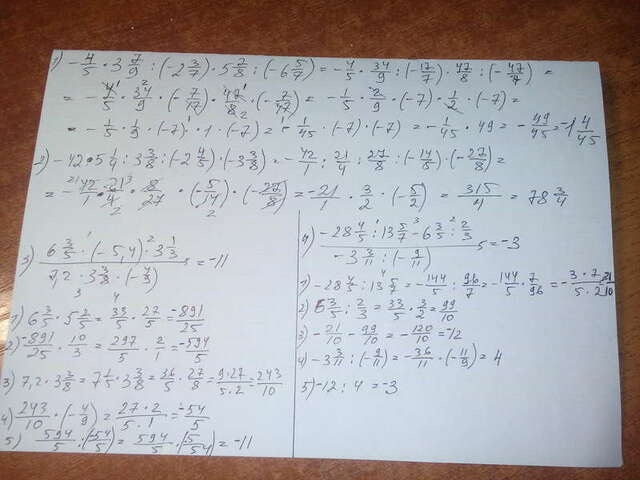 1) -4/5 · 3 7/9 : (-2 3/7) · 5 7/8 : (-6 5/7) = -4/5 · 34/9 : (-17/7) · 47/8 : (-47/7) =
= -4/5 · 34/9 · (-7/17) · 47/8 · (-7/47) = -1/5 · 2/9 · (-7) · 1/2 · (-7) =
= -1/5 · 1/9 · (-7) · 1 · (-7) = -1/45 · (-7) · (-7) = -1/45 · 49 = -49/45 = -1 4/45
2) -42 · 5 1/4 : 3 3/8 : (-2 4/5) · (-3 3/8) = -42/1 · 21/4 : 27/8 : (-14/5) · (-27/8) =
= -42/1 · 21/4 · 8/27 · (-5/14) · (-27/8) = -21/1 · 3/2 · (-5/2) = 315/4 = 78 3/4
3) (6 3/5 · (-5,4) · 3 1/3) / (7,2 · 3 3/8 · (-4/9)) = -11
1) 6 3/5 · 5 2/5 = 33/5 · 27/5 = -891/25
2) -891/25 · 10/3 = 297/5 · 2/1 = -594/5
3) 7,2 · 3 3/8 = 7 1/5 · 3 3/8 = 36/5 · 27/8 = 9·27/5·2 = 243/10
4) 243/10 · (-4/9) = 27·2/5·1 = -54/5
5) 594/5 : (-54/5) = 594/5 · (-5/54) = -11
4) (-28 4/5 : 13 5/7 - 6 3/5 : 2/3) / (-3 3/11 : (-9/11)) = -3
1) -28 4/5 : 13 5/7 = -144/5 : 96/7 = -144/5 · 7/96 = -3·7/5·2 = 21/10
2) 6 3/5 : 2/3 = 33/5 · 3/2 = 99/10
3) -21/10 - 99/10 = -120/10 = -12
4) -3 3/11 : (-9/11) = -36/11 · (-11/9) = 4
5) -12 : 4 = -3